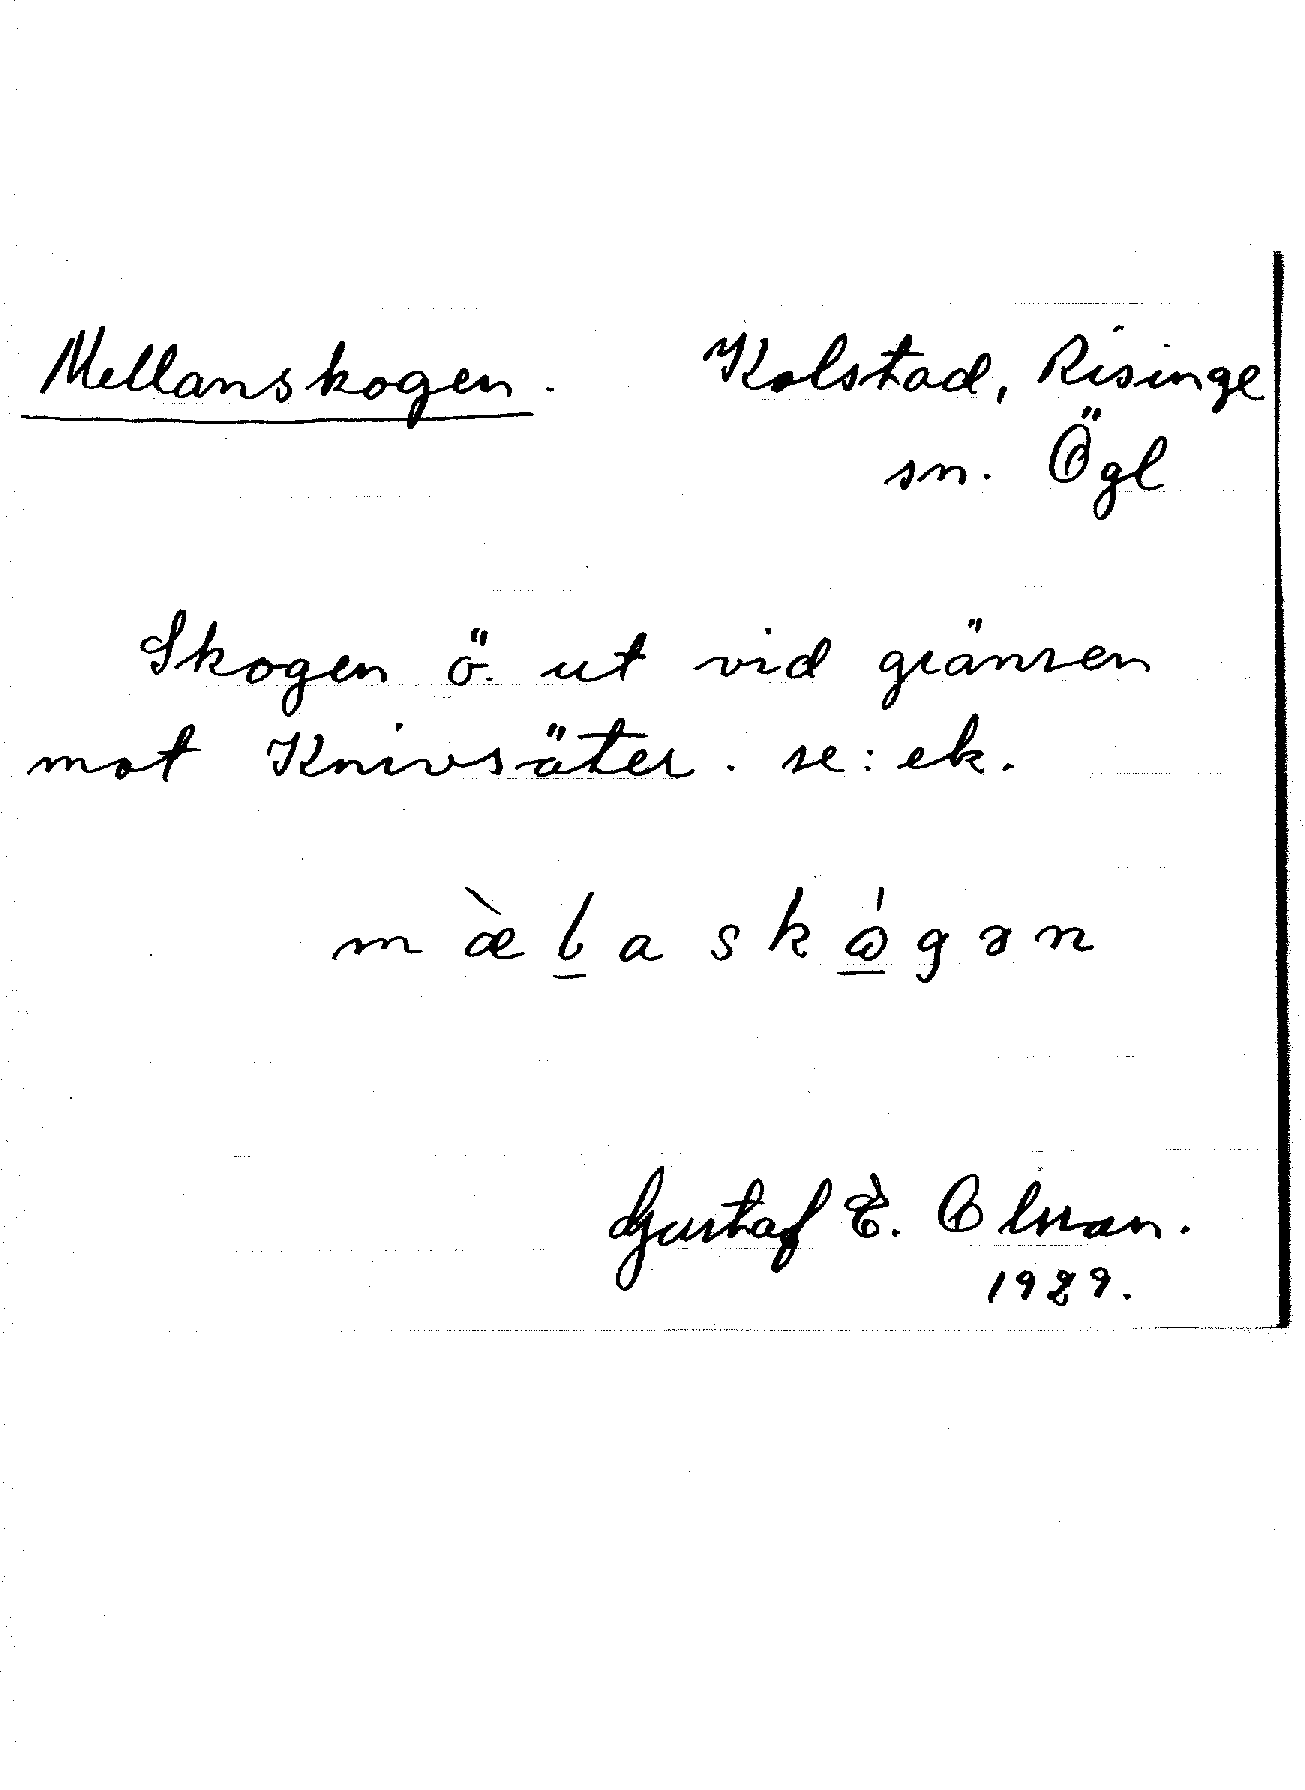 Mellanskogen. Kolstad, Risinge
sn. Ögl
Skogen ö. ut vid gränsen
mot Knivsäter. se: ek.
Gustaf E. Olsson.
1929.